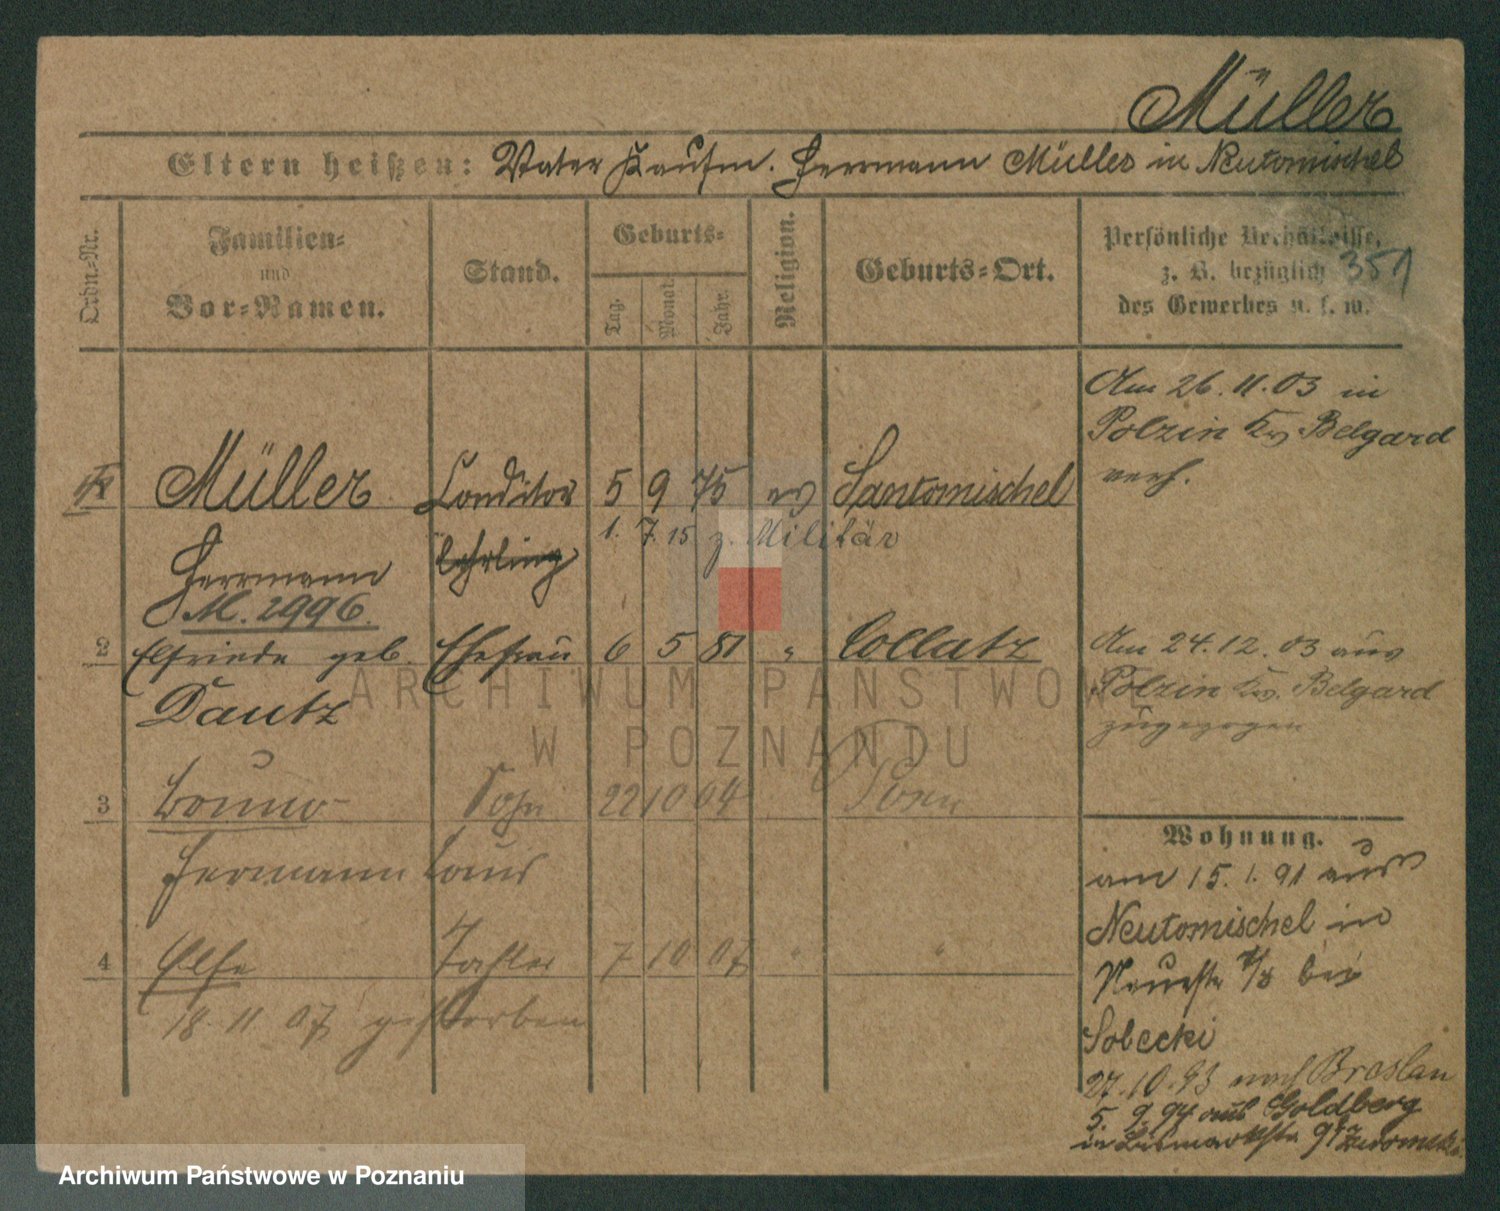 Müller
Eltern heißen: Vater Kaufm. Herrmann Müller in Neutomischel
Ordn.-Nr.
Familien-
und
Vor-Namen.
Stand.
Geburts-
Tag.
Monat.
Jahr.
Religion.
Geburts-Ort.
Persönliche Verhältnisse,
z. B. bezüglich
des Gewerbes u. s. w.
351
Am 26.11.03 in
Polzin Kr Belgard
verh.
Müller Conditor 5 9 75 ev Santomischel
lehrling 1. 7. 15 z. Militär
Herrmann
M. 2996.
2 Elfriede geb. Ehefrau 6 5 81 " Collatz
Dautz
Am 24.12.03 aus
Polzin Kr. Belgard
zugezogen
3 Bruno Sohn 22 10 04 Posen
Hermann
4 Else Tochter 7 10 07 " "
18. 11 07 gestorben
Wohnung.
am 15.1.91 aus
Neutomischel in
Neuestr 7/8 bei
Sobecki
27.10.93 nach Breslau
5. 9. 94 aus Goldberg
in Bismarckstr. 9
ARCHIWUM PAŃSTWOWE
W POZNANIU
Archiwum Państwowe w Poznaniu